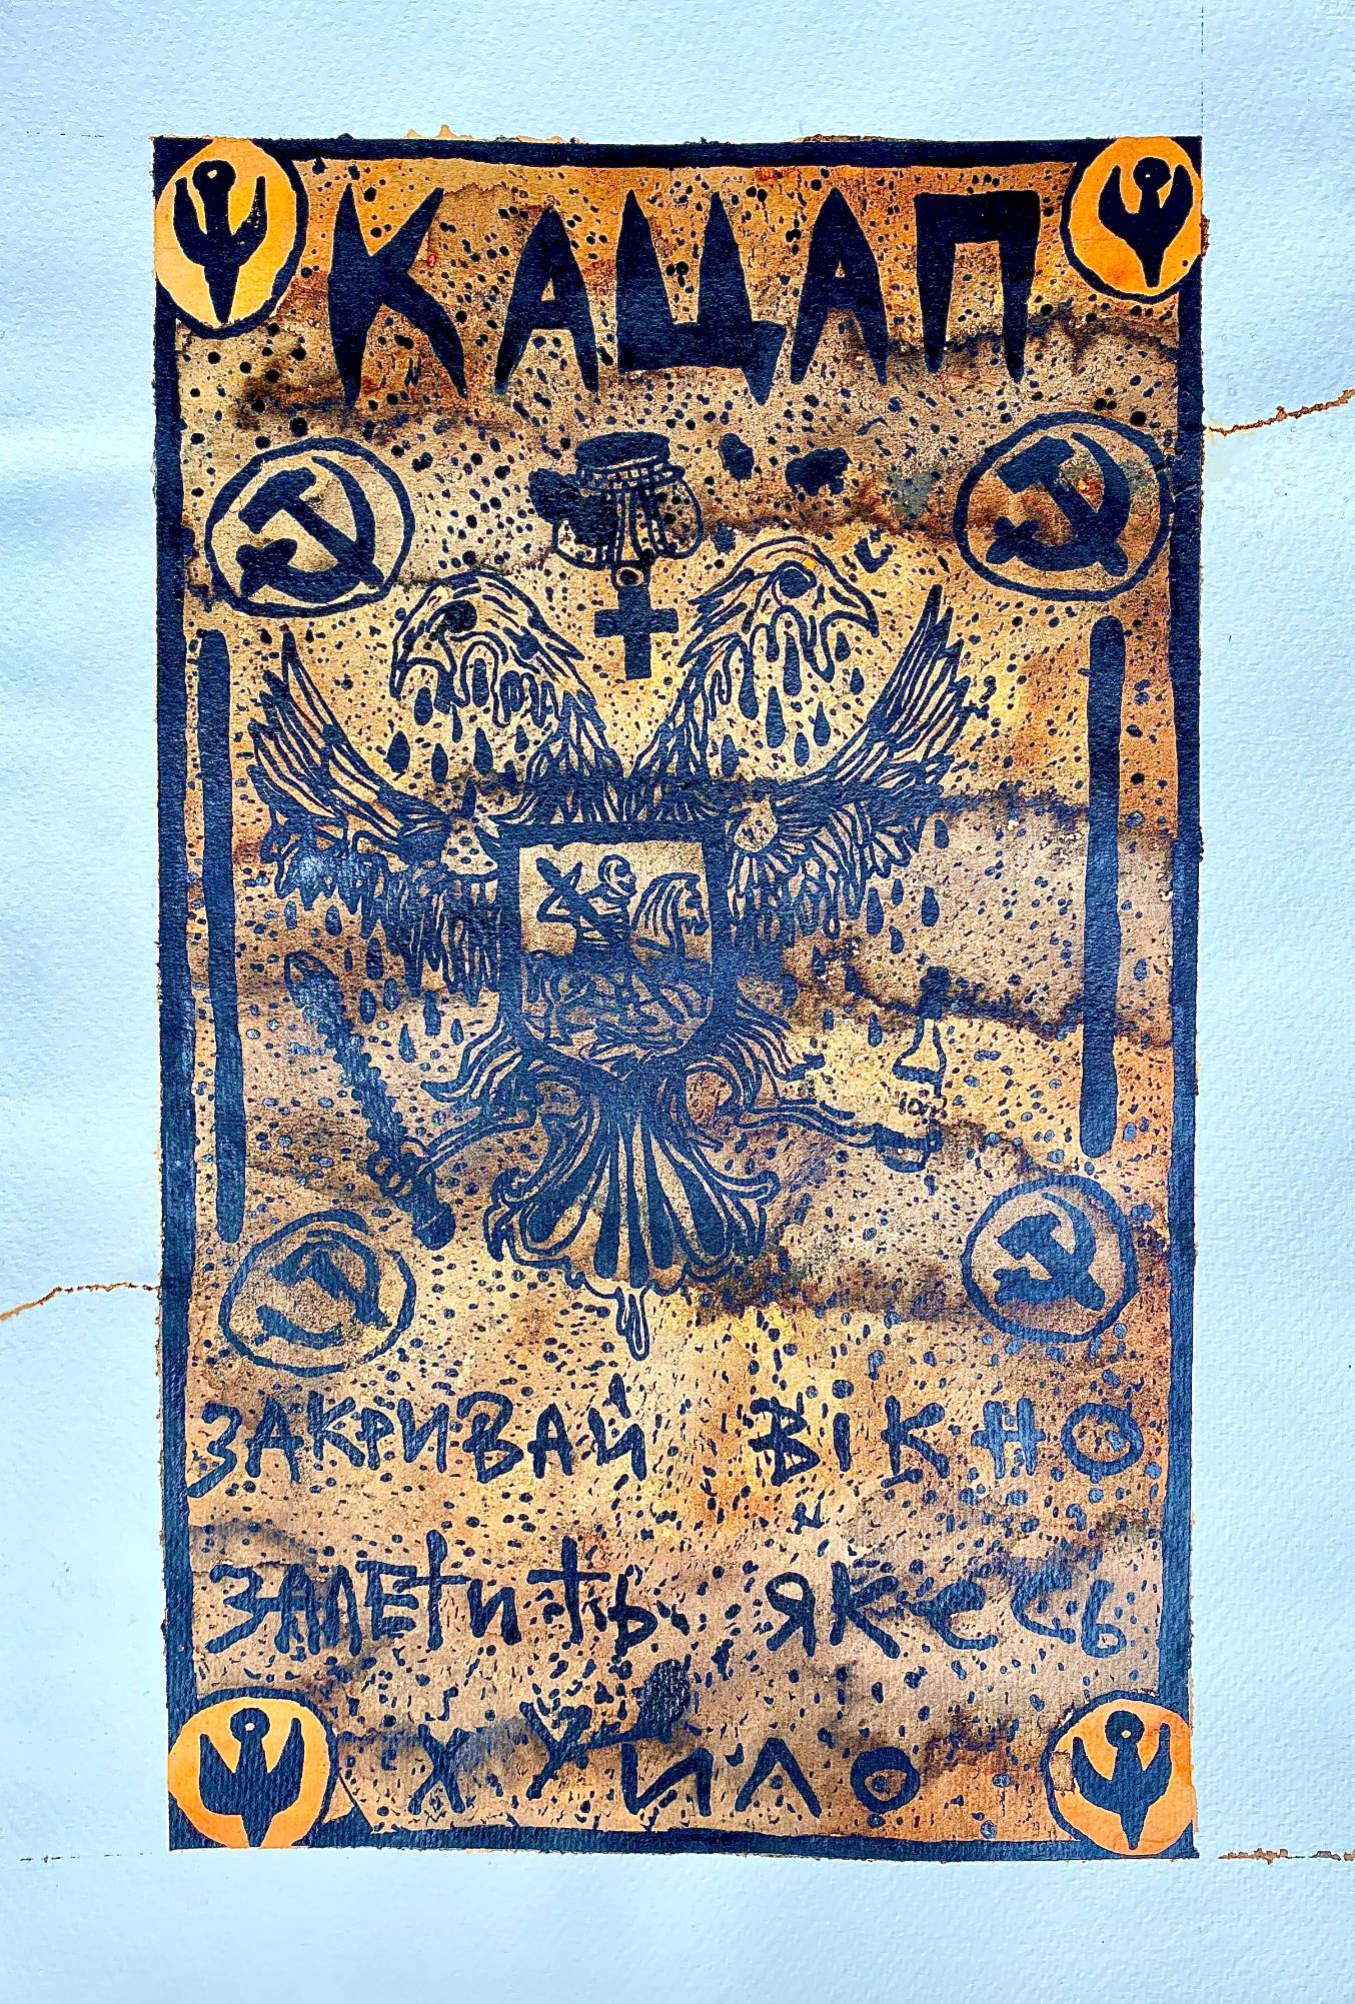 КАЦАП
ЗАКРИВАЙ ВІКНО
ЗАЛЕТИТЬ ЯКЕСЬ
ХУЙЛО